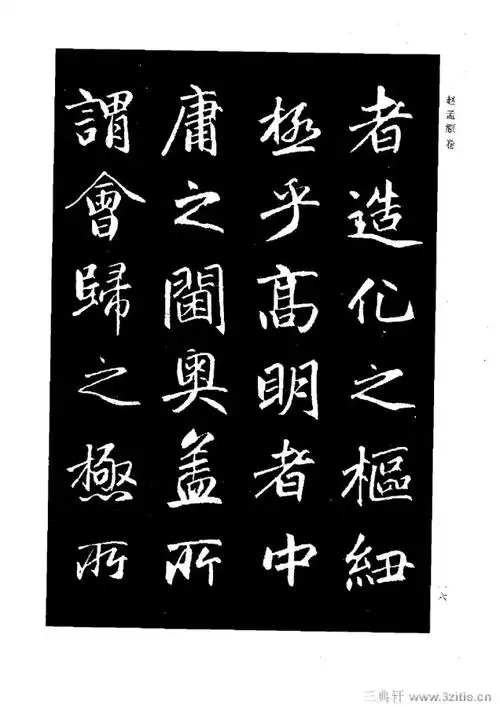 者造化之樞紐
極乎高明者中
庸之閫奧盖所
謂會歸之極所
赵孟頫卷
一六
三典轩 www.3zitie.cn